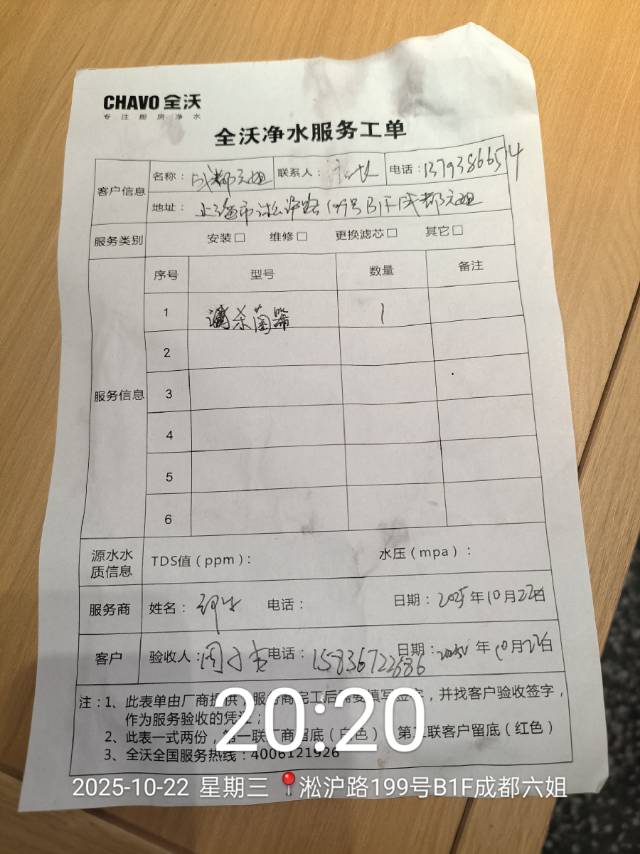 CHAVO 全沃
专注厨房净水
全沃净水服务工单
客户信息 名称：成都六姐 联系人： 电话：13793866514
地址：上海市淞沪路199号B1F成都六姐
服务类别 安装□ 维修□ 更换滤芯□ 其它□
服务信息 序号 型号 数量 备注
1 杀菌器 1
2
3
4
5
6
源水水质信息 TDS值（ppm）： 水压（mpa）：
服务商 姓名： 电话： 日期：2025年10月22日
客户 验收人：周 电话：15836722686 日期：2025年10月22日
注：1、此表单由厂商提供，服务商完工后需要填写签字，并找客户验收签字，
作为服务验收的凭证；
2、此表一式两份，第一联厂商留底（白色） 第二联客户留底（红色）
3、全沃全国服务热线：4006121926
20:20
2025-10-22 星期三 淞沪路199号B1F成都六姐